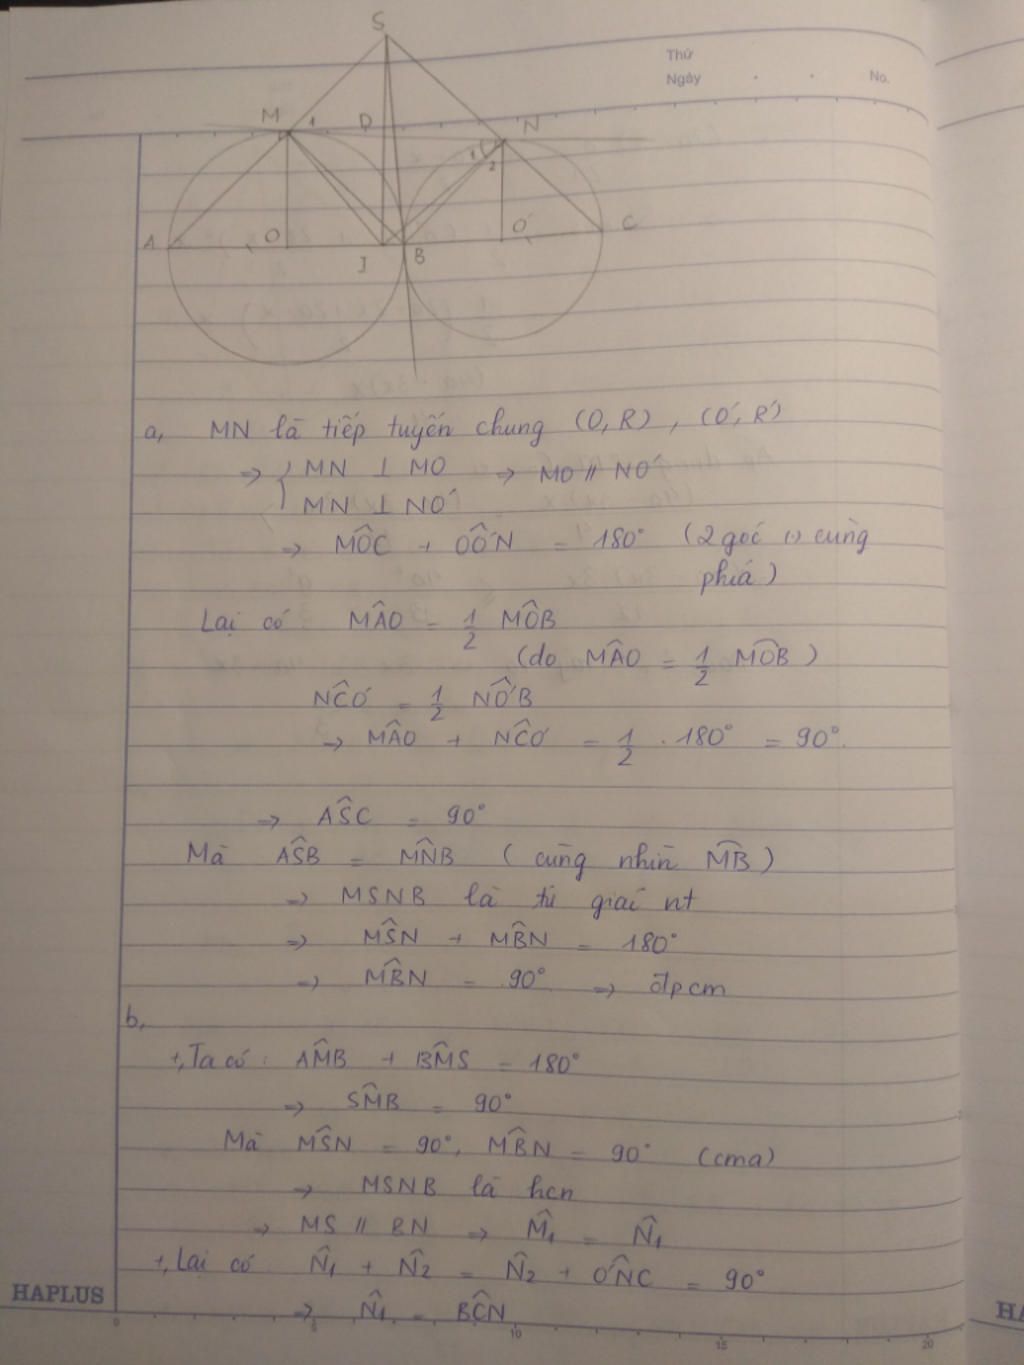 S
Thứ
Ngày . . No.
M 1 D N
1 2
A O J B O' C
a, MN là tiếp tuyến chung (O,R), (O',R')
=> { MN ⊥ MO => MO // NO'
MN ⊥ NO'
=> MÔC + OÔ'N = 180° (2 góc ẩn cùng
phiá)
Lại có MÂO = 1/2 MÔB
(do MÂO = 1/2 MÔB)
NĈO' = 1/2 NÔ'B
=> MÂO + NĈO' = 1/2 . 180° = 90°.
=> AŜC = 90°
Mà AŜB = MN̂B (cùng nhìn MB)
=> MSNB là tứ giác nt
=> MŜN + MB̂N = 180°
=> MB̂N = 90° => đpcm
b,
+, Ta có: AM̂B + BM̂S = 180°
=> SM̂B = 90°
Mà MŜN = 90°, MB̂N = 90° (cma)
=> MSNB là hcn
=> MS // BN => M̂1 = N̂1
+, Lại có N̂1 + N̂2 = N̂2 + O'N̂C = 90°
=> N̂1 = BĈN
HAPLUS
0 5 10 15 20
HA